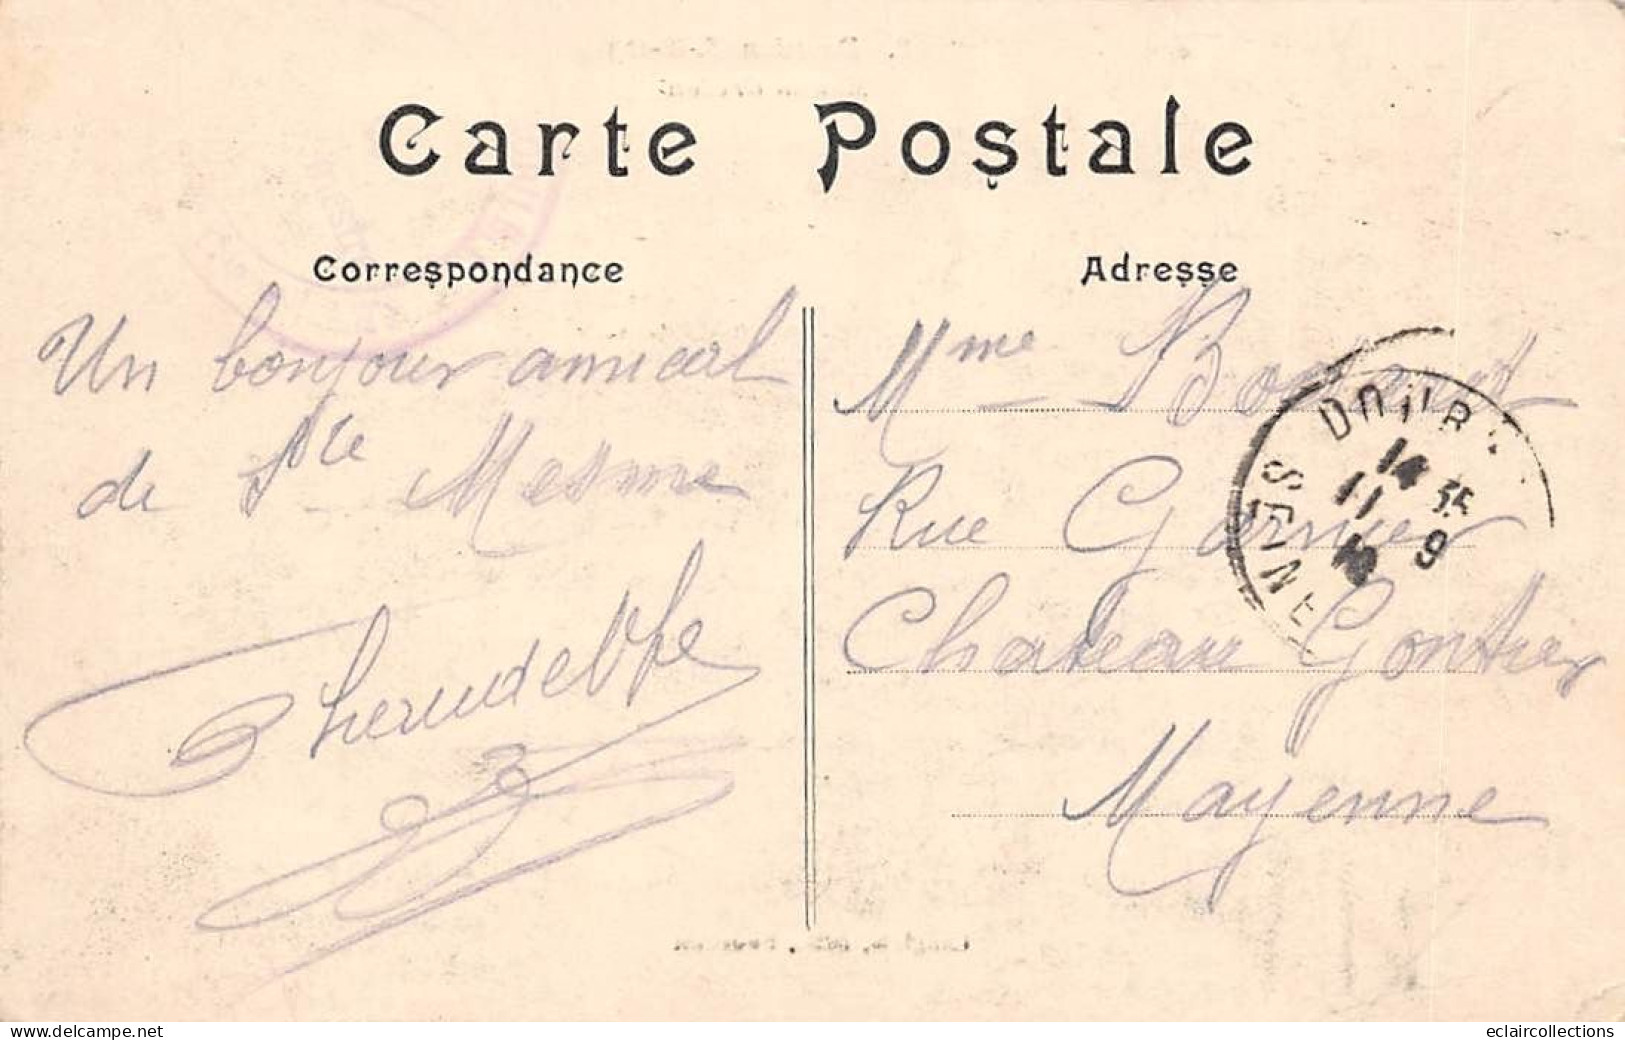 Carte Postale
Correspondance
Un bonjour amical
de Ste Mesme
Adresse
Mme
Rue Garnier
Chateau Gontier
Mayenne
DOUR
14 35
11 9
SEINE
www.delcampe.net
eclaircollections